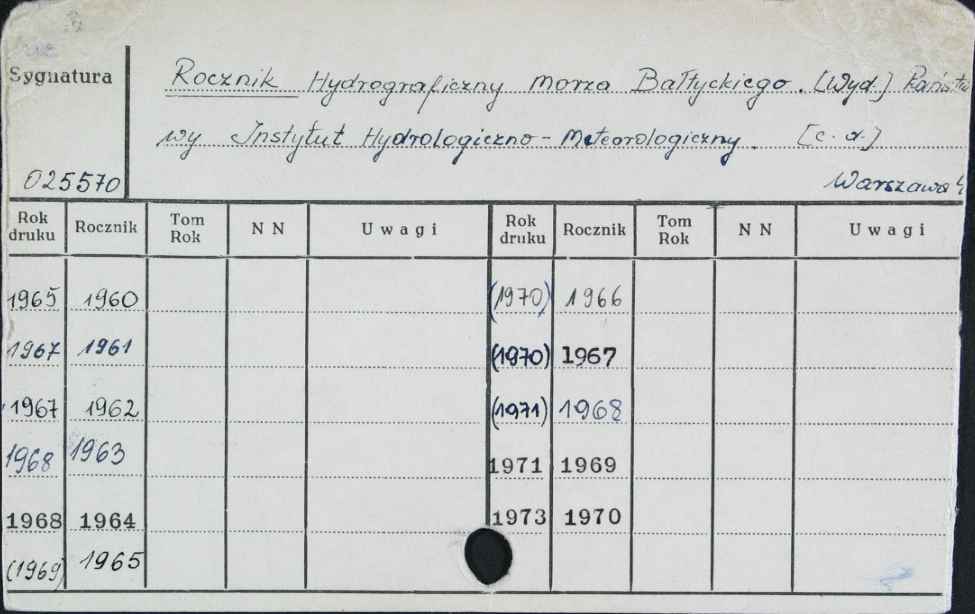 Sygnatura
Rocznik Hydrograficzny Morza Bałtyckiego. [Wyd.] Państwo
wy Instytut Hydrologiczno-Meteorologiczny. [c.d.]
025570
Warszawa
Rok druku Rocznik Tom Rok NN Uwagi Rok druku Rocznik Tom Rok NN Uwagi
1965 1960 (1970) 1966
1967 1961 (1970) 1967
1967 1962 (1971) 1968
1968 1963 1971 1969
1968 1964 1973 1970
(1969) 1965